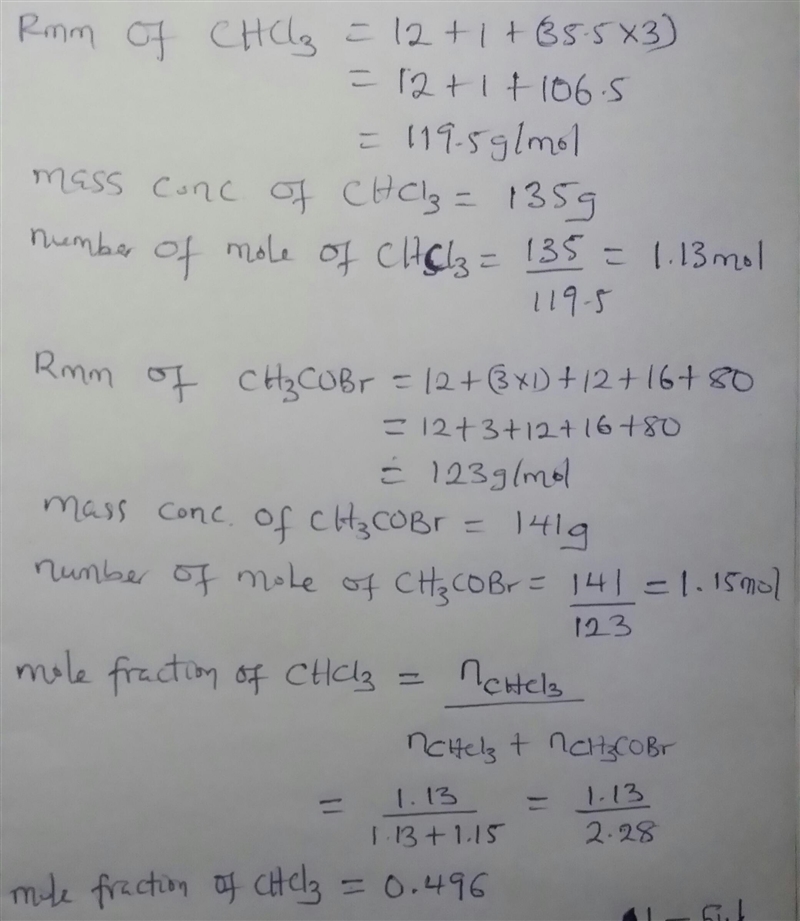 Rmm Of CHCl3 = 12 + 1 + (35.5×3)
= 12 + 1 + 106.5
= 119.5g/mol
mass conc of CHCl3 = 135g
number of mole of CHCl3 = 135/119.5 = 1.13mol
Rmm of CH3COBr = 12 + (3×1) + 12 + 16 + 80
= 12 + 3 + 12 + 16 + 80
= 123g/mol
mass conc. of CH3COBr = 141g
number of mole of CH3COBr = 141/123 = 1.15mol
mole fraction of CHCl3 = nCHCl3 / nCHCl3 + nCH3COBr
= 1.13/1.13 + 1.15 = 1.13/2.28
mole fraction of CHCl3 = 0.496